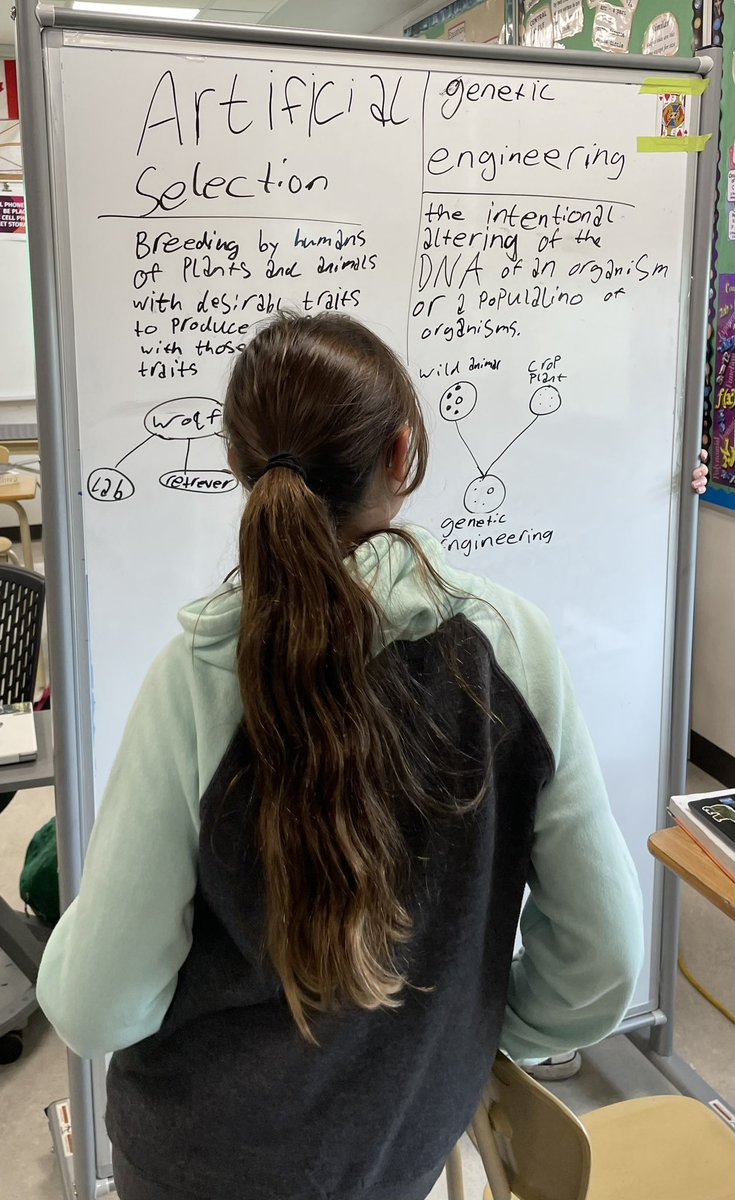 Artificial
Selection
Breeding by humans
of Plants and animals
with desirabl traits
to Produce
with those
traits
wolf
Lab
retrever
genetic
engineering
the intentional
altering of the
DNA of an organism
or a Populatino of
organisms.
wild animal
crop
Plant
genetic
engineering